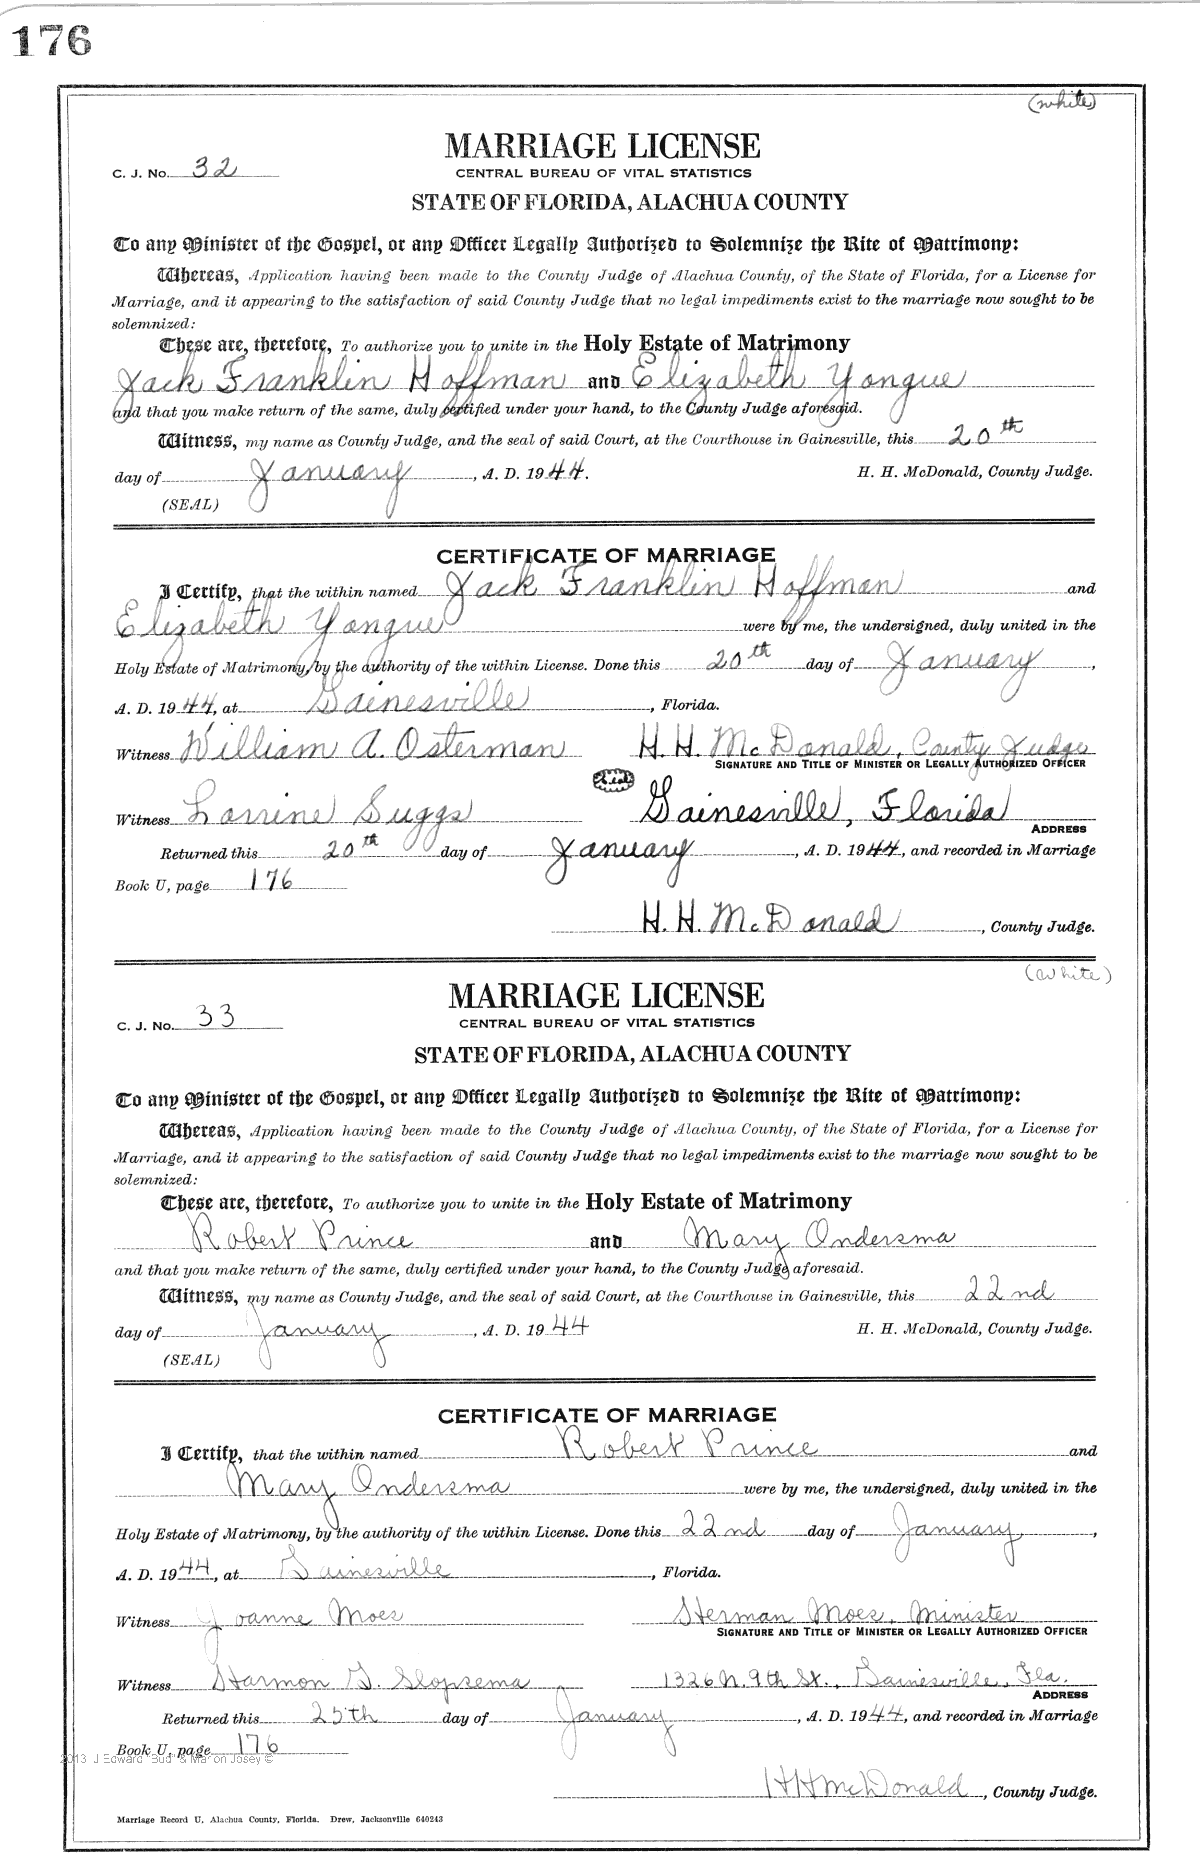 176
(white)
MARRIAGE LICENSE
C. J. No. 32
CENTRAL BUREAU OF VITAL STATISTICS
STATE OF FLORIDA, ALACHUA COUNTY
To any Minister of the Gospel, or any Officer Legally Authorized to Solemnize the Rite of Matrimony:
Whereas, Application having been made to the County Judge of Alachua County, of the State of Florida, for a License for
Marriage, and it appearing to the satisfaction of said County Judge that no legal impediments exist to the marriage now sought to be
solemnized:
These are, therefore, To authorize you to unite in the Holy Estate of Matrimony
Jack Franklin Hoffman and Elizabeth Yongue
and that you make return of the same, duly certified under your hand, to the County Judge aforesaid.
Witness, my name as County Judge, and the seal of said Court, at the Courthouse in Gainesville, this 20th
day of January, A. D. 1944. H. H. McDonald, County Judge.
(SEAL)
CERTIFICATE OF MARRIAGE
I Certify, that the within named Jack Franklin Hoffman and
Elizabeth Yongue were by me, the undersigned, duly united in the
Holy Estate of Matrimony, by the authority of the within License. Done this 20th day of January,
A. D. 1944, at Gainesville, Florida.
Witness William A. Osterman H. H. McDonald, County Judge
SIGNATURE AND TITLE OF MINISTER OR LEGALLY AUTHORIZED OFFICER
Seal
Witness Lorrine Suggs Gainesville, Florida
ADDRESS
Returned this 20th day of January, A. D. 1944, and recorded in Marriage
Book U, page 176
H. H. McDonald, County Judge.
(white)
MARRIAGE LICENSE
C. J. No. 33
CENTRAL BUREAU OF VITAL STATISTICS
STATE OF FLORIDA, ALACHUA COUNTY
To any Minister of the Gospel, or any Officer Legally Authorized to Solemnize the Rite of Matrimony:
Whereas, Application having been made to the County Judge of Alachua County, of the State of Florida, for a License for
Marriage, and it appearing to the satisfaction of said County Judge that no legal impediments exist to the marriage now sought to be
solemnized:
These are, therefore, To authorize you to unite in the Holy Estate of Matrimony
Robert Prince and Mary Ondersma
and that you make return of the same, duly certified under your hand, to the County Judge aforesaid.
Witness, my name as County Judge, and the seal of said Court, at the Courthouse in Gainesville, this 22nd
day of January, A. D. 1944 H. H. McDonald, County Judge.
(SEAL)
CERTIFICATE OF MARRIAGE
I Certify, that the within named Robert Prince and
Mary Ondersma were by me, the undersigned, duly united in the
Holy Estate of Matrimony, by the authority of the within License. Done this 22nd day of January,
A. D. 1944, at Gainesville, Florida.
Witness Joanne Moes Herman Moes, Minister
SIGNATURE AND TITLE OF MINISTER OR LEGALLY AUTHORIZED OFFICER
Witness Harmon G. Slopsema 1326 N. 9th St., Gainesville, Fla.
ADDRESS
Returned this 25th day of January, A. D. 1944, and recorded in Marriage
Book U, page 176
2013 J Edward "Bud" & Marion Josey ©
H H McDonald, County Judge.
Marriage Record U, Alachua County, Florida. Drew, Jacksonville 640243